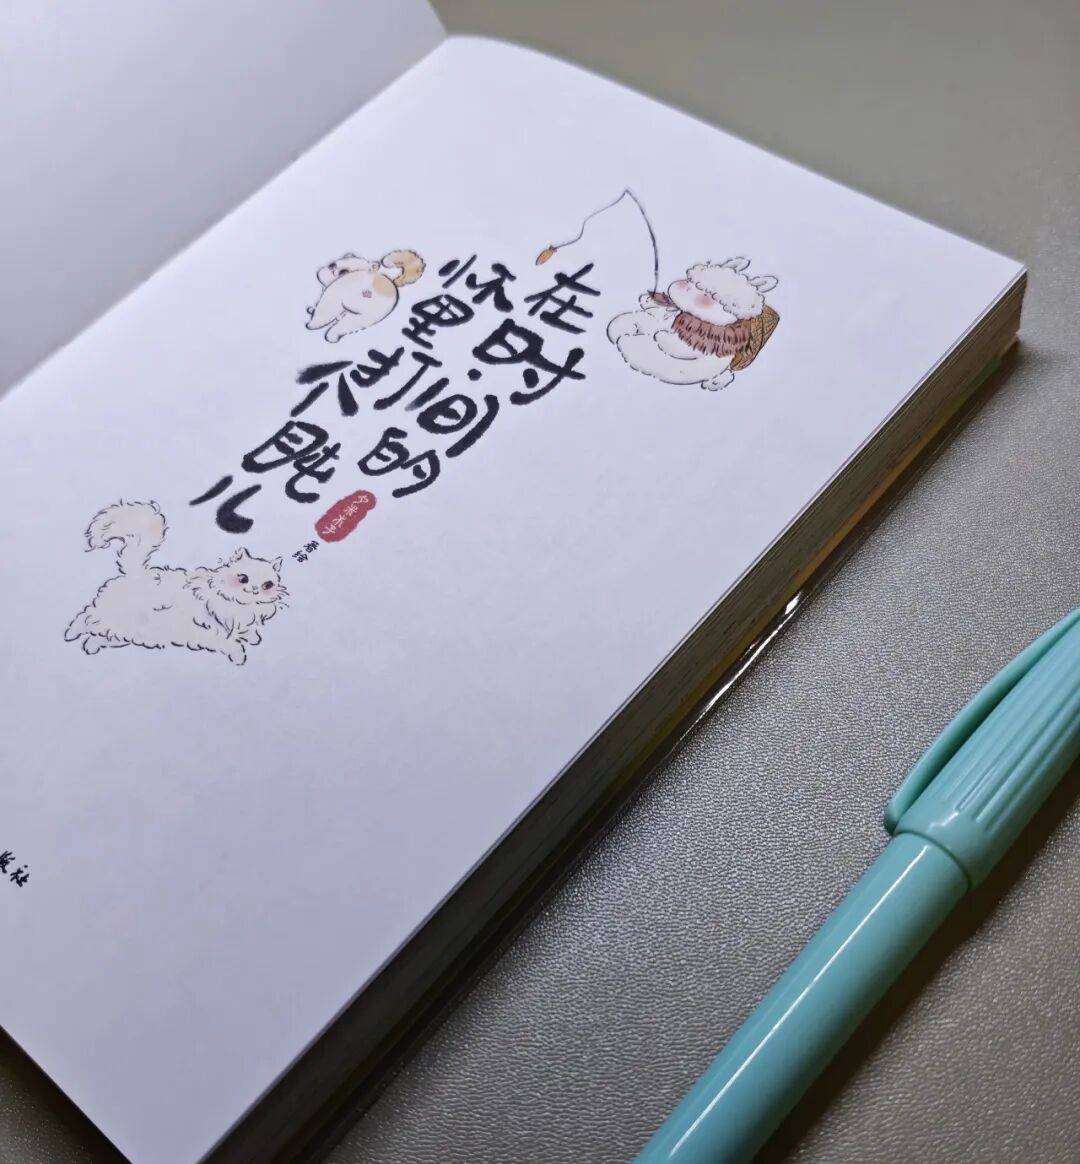 在时间的
怀里打个盹儿
著绘
版社